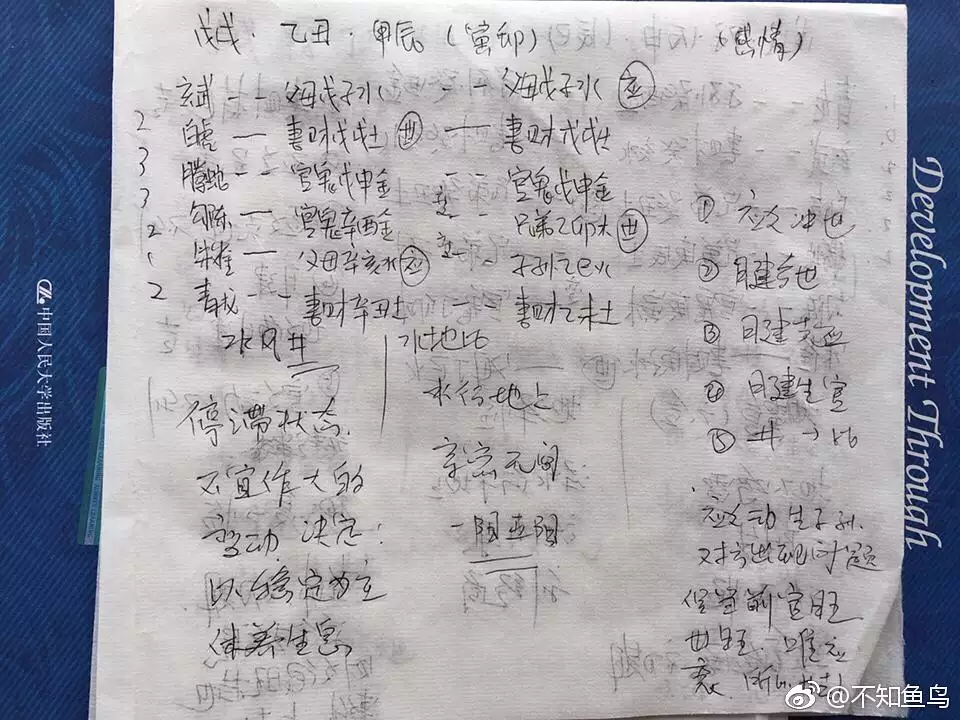 戊戌·乙丑·甲辰（寅卯）（感情）
玄武 -- 父母戊子水 -- 父母戊子水 应
2 白虎 — 妻财戊戌土 世 — 妻财戊戌土
3 腾蛇 -- 官鬼戊申金 -- 官鬼戊申金
3 勾陈 — 官鬼辛酉金 -- 兄弟乙卯木 世
2 朱雀 — 父母辛亥水 应 -- 子孙乙巳火
2 青龙 -- 妻财辛丑土 妻财乙未土
水风井
水地比
停滞状态
不宜作大的
变动 决定：
以稳定为主
休养生息
水行地上
亲密无间
一阳五阴
① 应爻冲世
② 日建合世
③ 日建克应
④ 日建生官
⑤ 井→比
应爻动生子孙
对方出现问题
但当前官旺
世旺 唯应
衰
中国人民大学出版社
Development Through
@不知鱼鸟